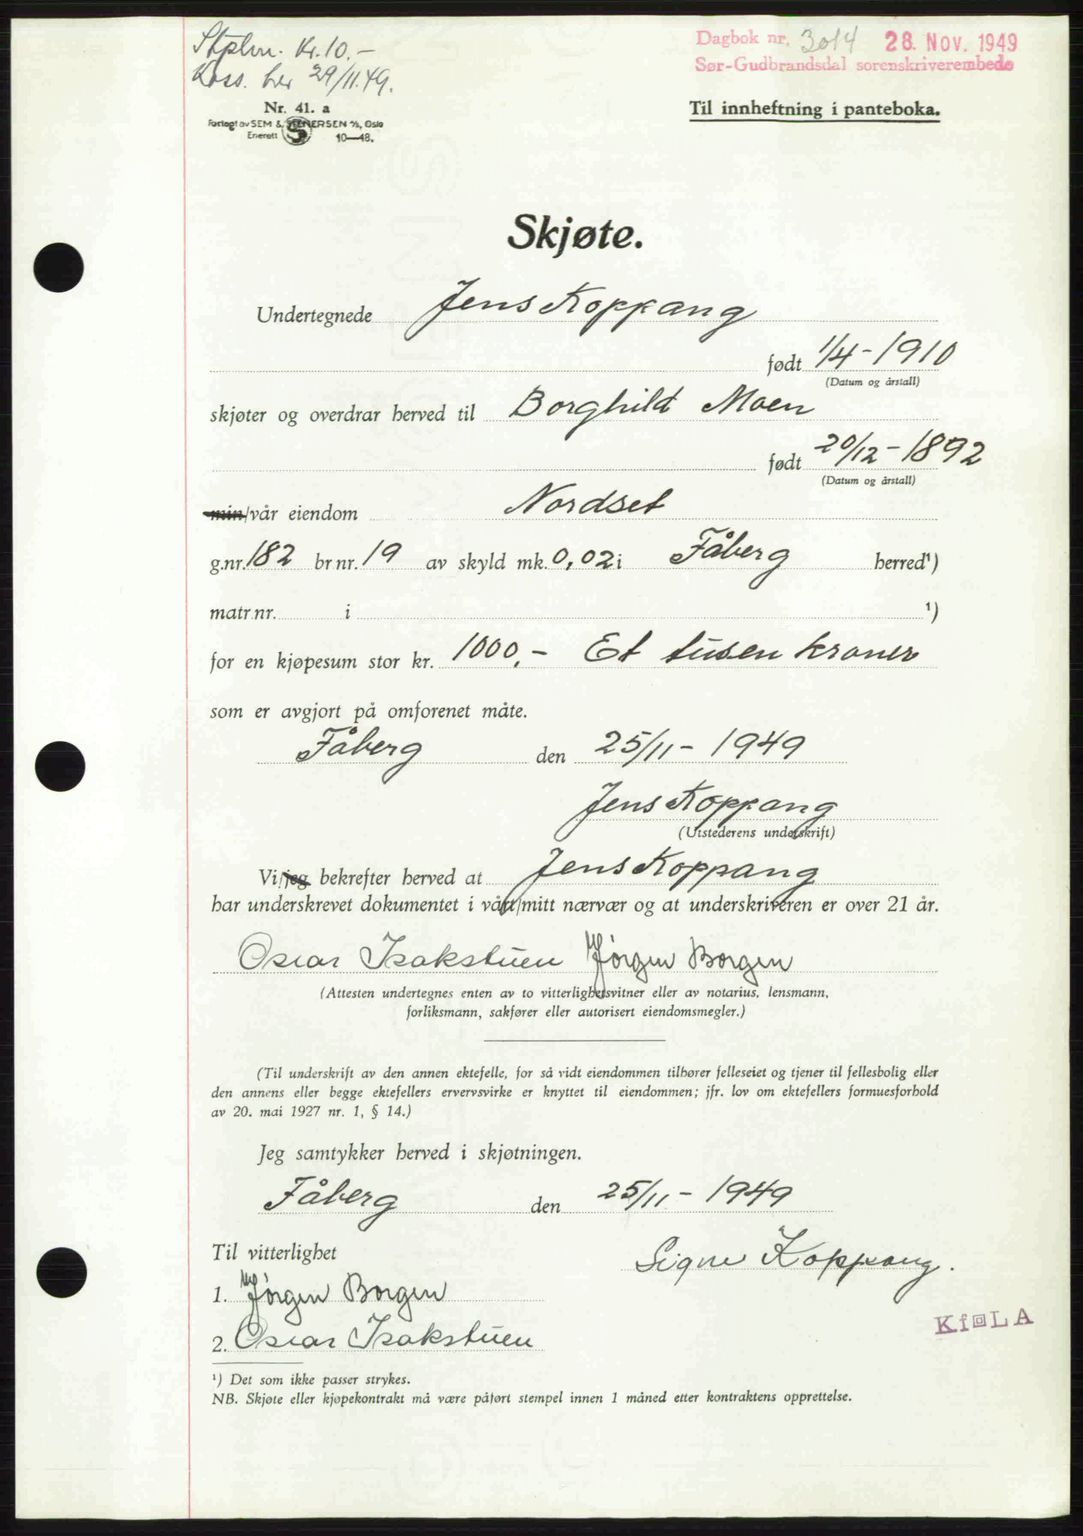 Stplm. Kr. 10.-
Kass. her 29/11.49.
Dagbok nr. 3014 28. NOV. 1949
Sør-Gudbrandsdal sorenskriverembede
Nr. 41. a
Forlagt av SEM & STENERSEN A/S, Oslo
Enerett S 10—48.
Til innheftning i panteboka.
Skjøte.
Undertegnede Jens Koppang
født 1/4-1910
(Datum og årstall)
skjøter og overdrar herved til Borghild Moen
født 20/12-1892
(Datum og årstall)
min/vår eiendom Nordset
g.nr. 182 br.nr. 19 av skyld mk. 0,02 i Fåberg herred¹)
matr.nr. i ¹)
for en kjøpesum stor kr. 1000,- Et tusen kroner
som er avgjort på omforenet måte.
Fåberg den 25/11-1949
Jens Koppang
(Utstederens underskrift)
Vi/jeg bekrefter herved at Jens Koppang
har underskrevet dokumentet i vårt/mitt nærvær og at underskriveren er over 21 år.
Oscar Isakstuen Jørgen Borgen
(Attesten undertegnes enten av to vitterlighetsvitner eller av notarius, lensmann,
forliksmann, sakfører eller autorisert eiendomsmegler.)
(Til underskrift av den annen ektefelle, for så vidt eiendommen tilhører felleseiet og tjener til fellesbolig eller
den annens eller begge ektefellers ervervsvirke er knyttet til eiendommen; jfr. lov om ektefellers formuesforhold
av 20. mai 1927 nr. 1, § 14.)
Jeg samtykker herved i skjøtningen.
Fåberg den 25/11-1949
Til vitterlighet
Signe Koppang.
1. Jørgen Borgen
2. Oscar Isakstuen
¹) Det som ikke passer strykes.
NB. Skjøte eller kjøpekontrakt må være påført stempel innen 1 måned etter kontraktens opprettelse.